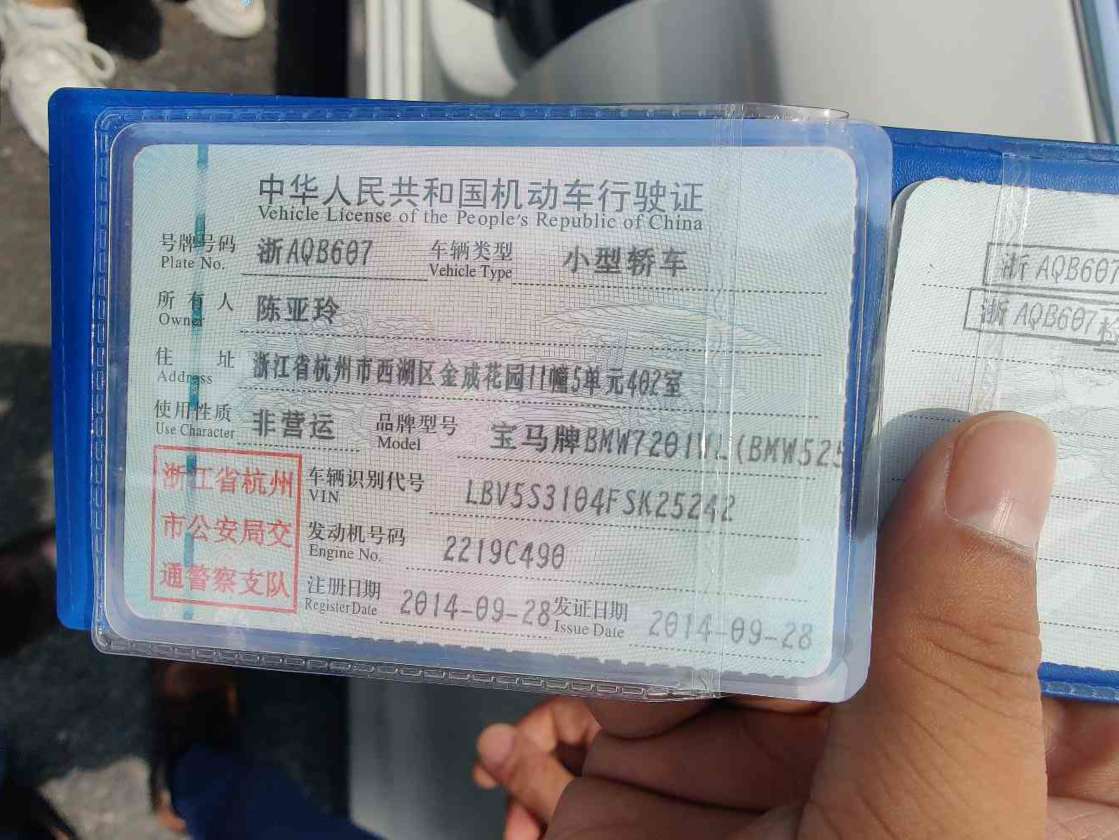 中华人民共和国机动车行驶证
Vehicle License of the People's Republic of China
号牌号码 浙AQB607 车辆类型 小型轿车
Plate No. Vehicle Type
所有人 陈亚玲
Owner
住址 浙江省杭州市西湖区金成花园11幢5单元402室
Address
使用性质 非营运 品牌型号 宝马牌BMW7201VL(BMW525
Use Character Model
浙江省杭州
市公安局交
通警察支队
车辆识别代号 LBV5S3104FSK25242
VIN
发动机号码 2219C490
Engine No.
注册日期 2014-09-28 发证日期 2014-09-28
Register Date Issue Date
浙AQB607
浙AQB607